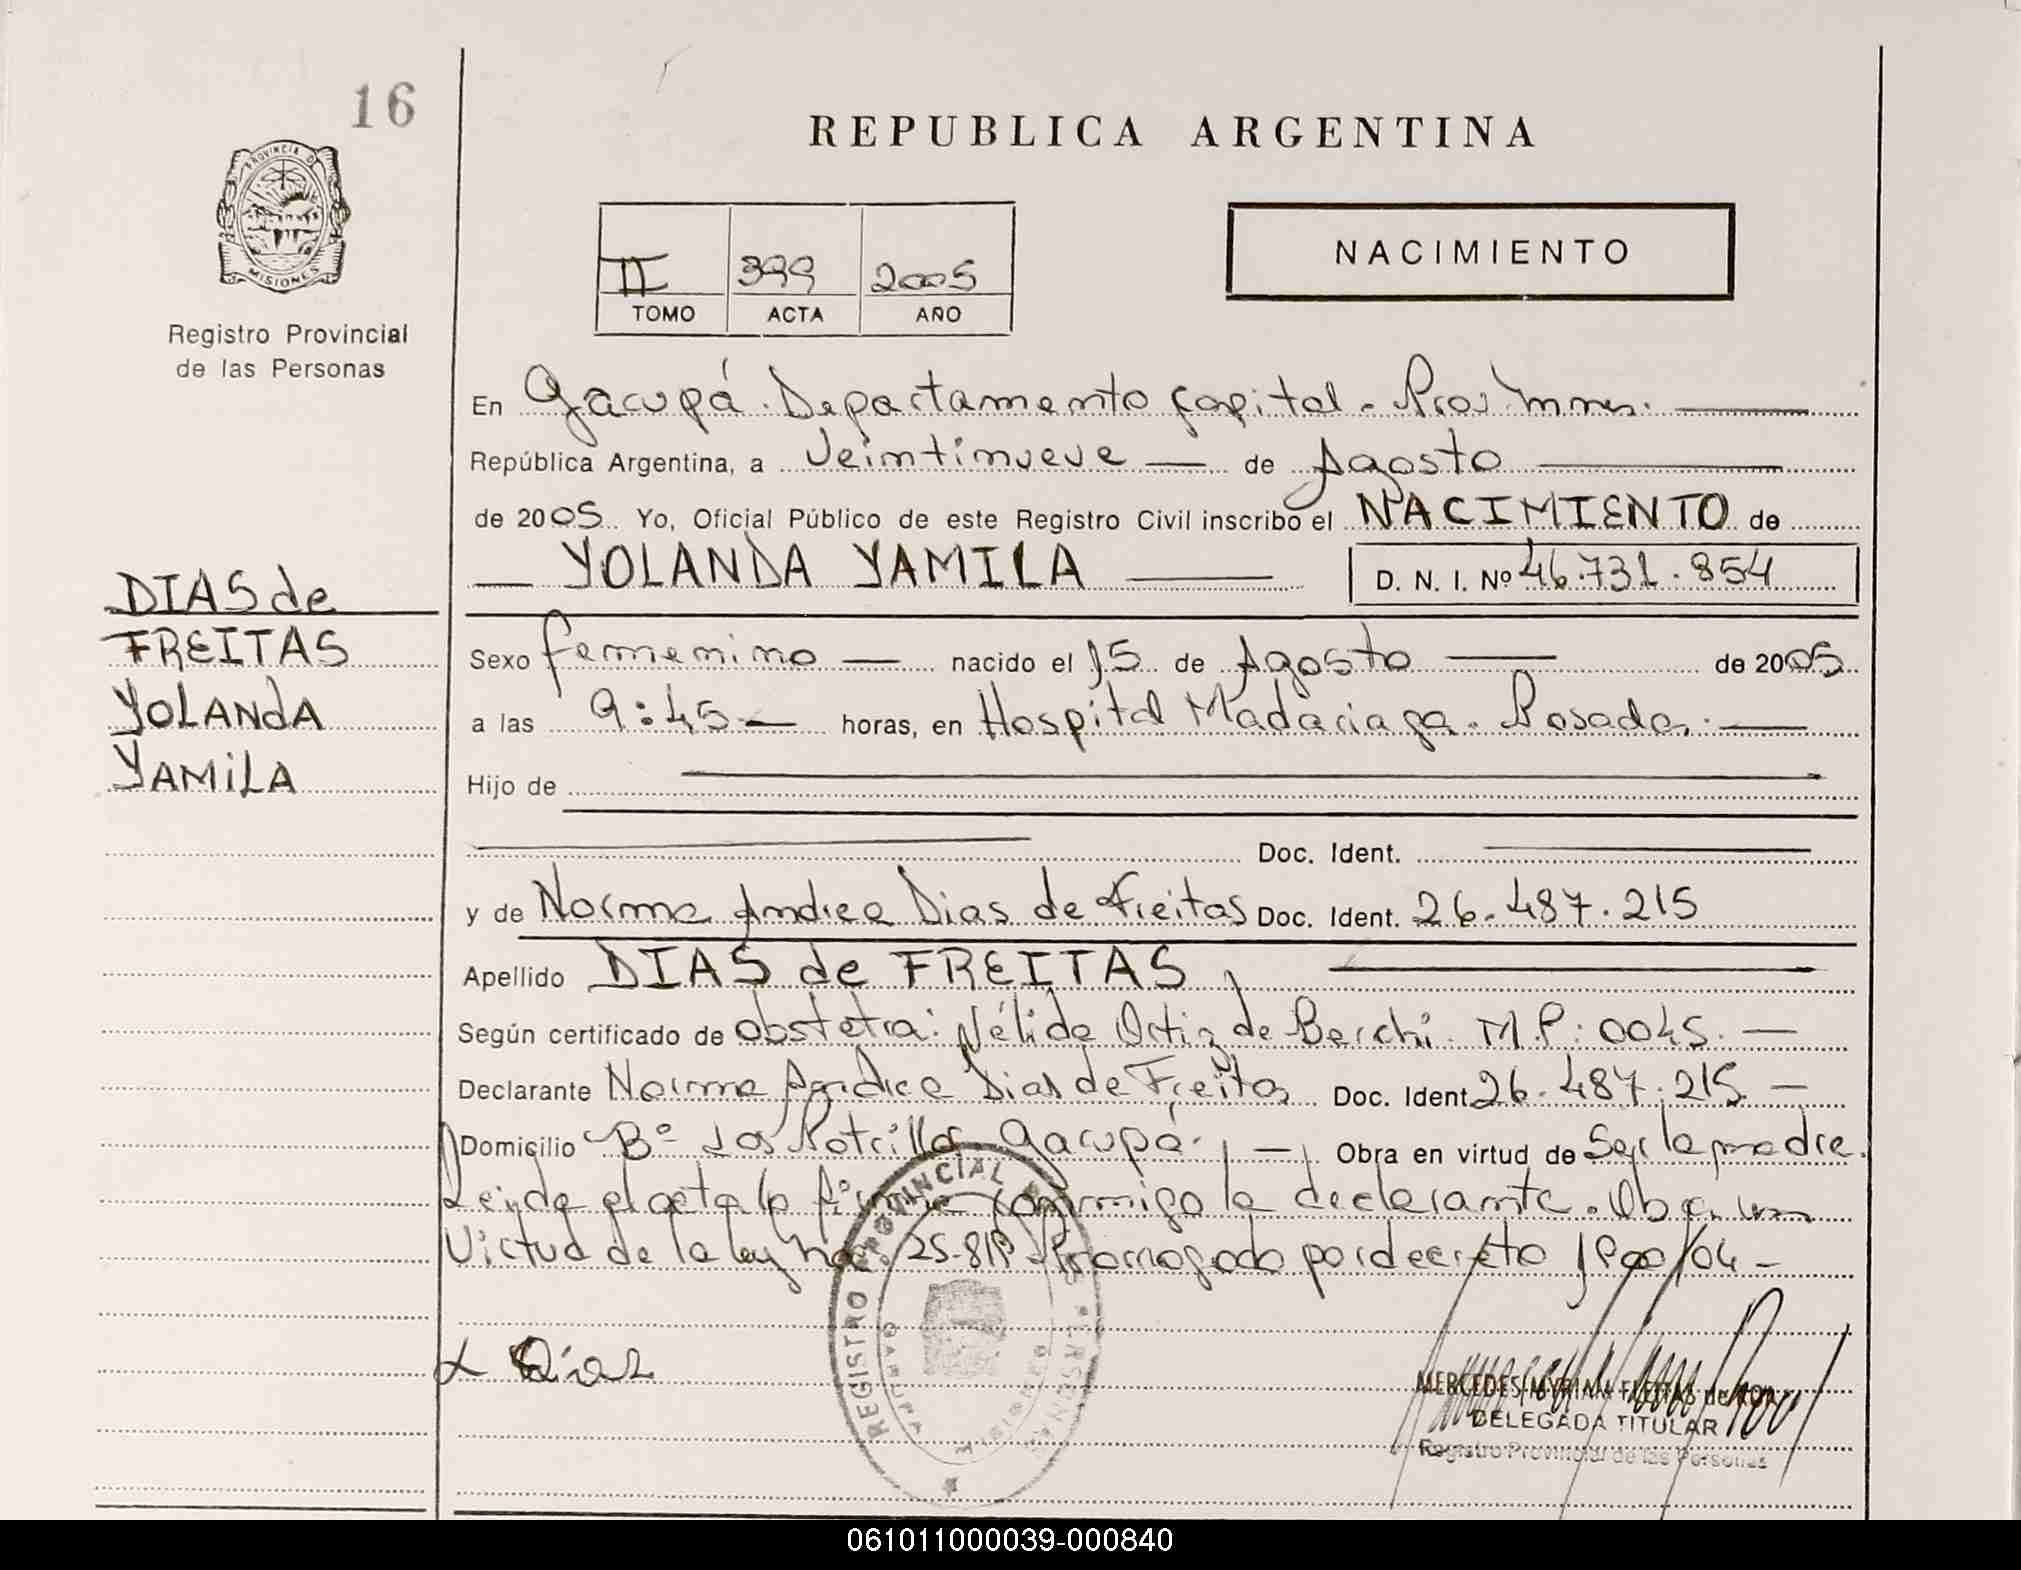 16
REPUBLICA ARGENTINA
PROVINCIA D
MISIONES
Registro Provincial
de las Personas
II 399 2005
TOMO ACTA AÑO
NACIMIENTO
En Garupá. Departamento Capital - Prov Mnes.
República Argentina, a Veintinueve — de Agosto
de 2005 Yo, Oficial Público de este Registro Civil inscribo el NACIMIENTO de
— YOLANDA YAMILA — D. N. I. Nº 46.731.854
DIAS de
FREITAS
YOLANdA
YAMiLA
Sexo femenino — nacido el 15 de Agosto — de 2005
a las 9:45 — horas, en Hospital Madariaga. Posadas. —
Hijo de
Doc. Ident.
y de Norma Andrea Dias de Freitas Doc. Ident. 26.487.215
Apellido DIAS de FREITAS
Según certificado de obstetra: Nélida Ortiz de Berchi. M.P: 0045. —
Declarante Norma Andrea Dias de Freitas Doc. Ident. 26.487.215 —
Domicilio Bº Los Potrillos Garupá. — Obra en virtud de Ser la madre.
Leida el acta la firma conmigo la declarante. Obra en
Virtud de la ley nac. 25.819 Prorrogado por decreto 1900/04 -
REGISTRO PROVINCIAL DE LAS PERSONAS
GARUPA
MISIONES
Dias
MERCEDES MYRIAM FLEITAS de
DELEGADA TITULAR
Registro Provincial de las Personas
061011000039-000840